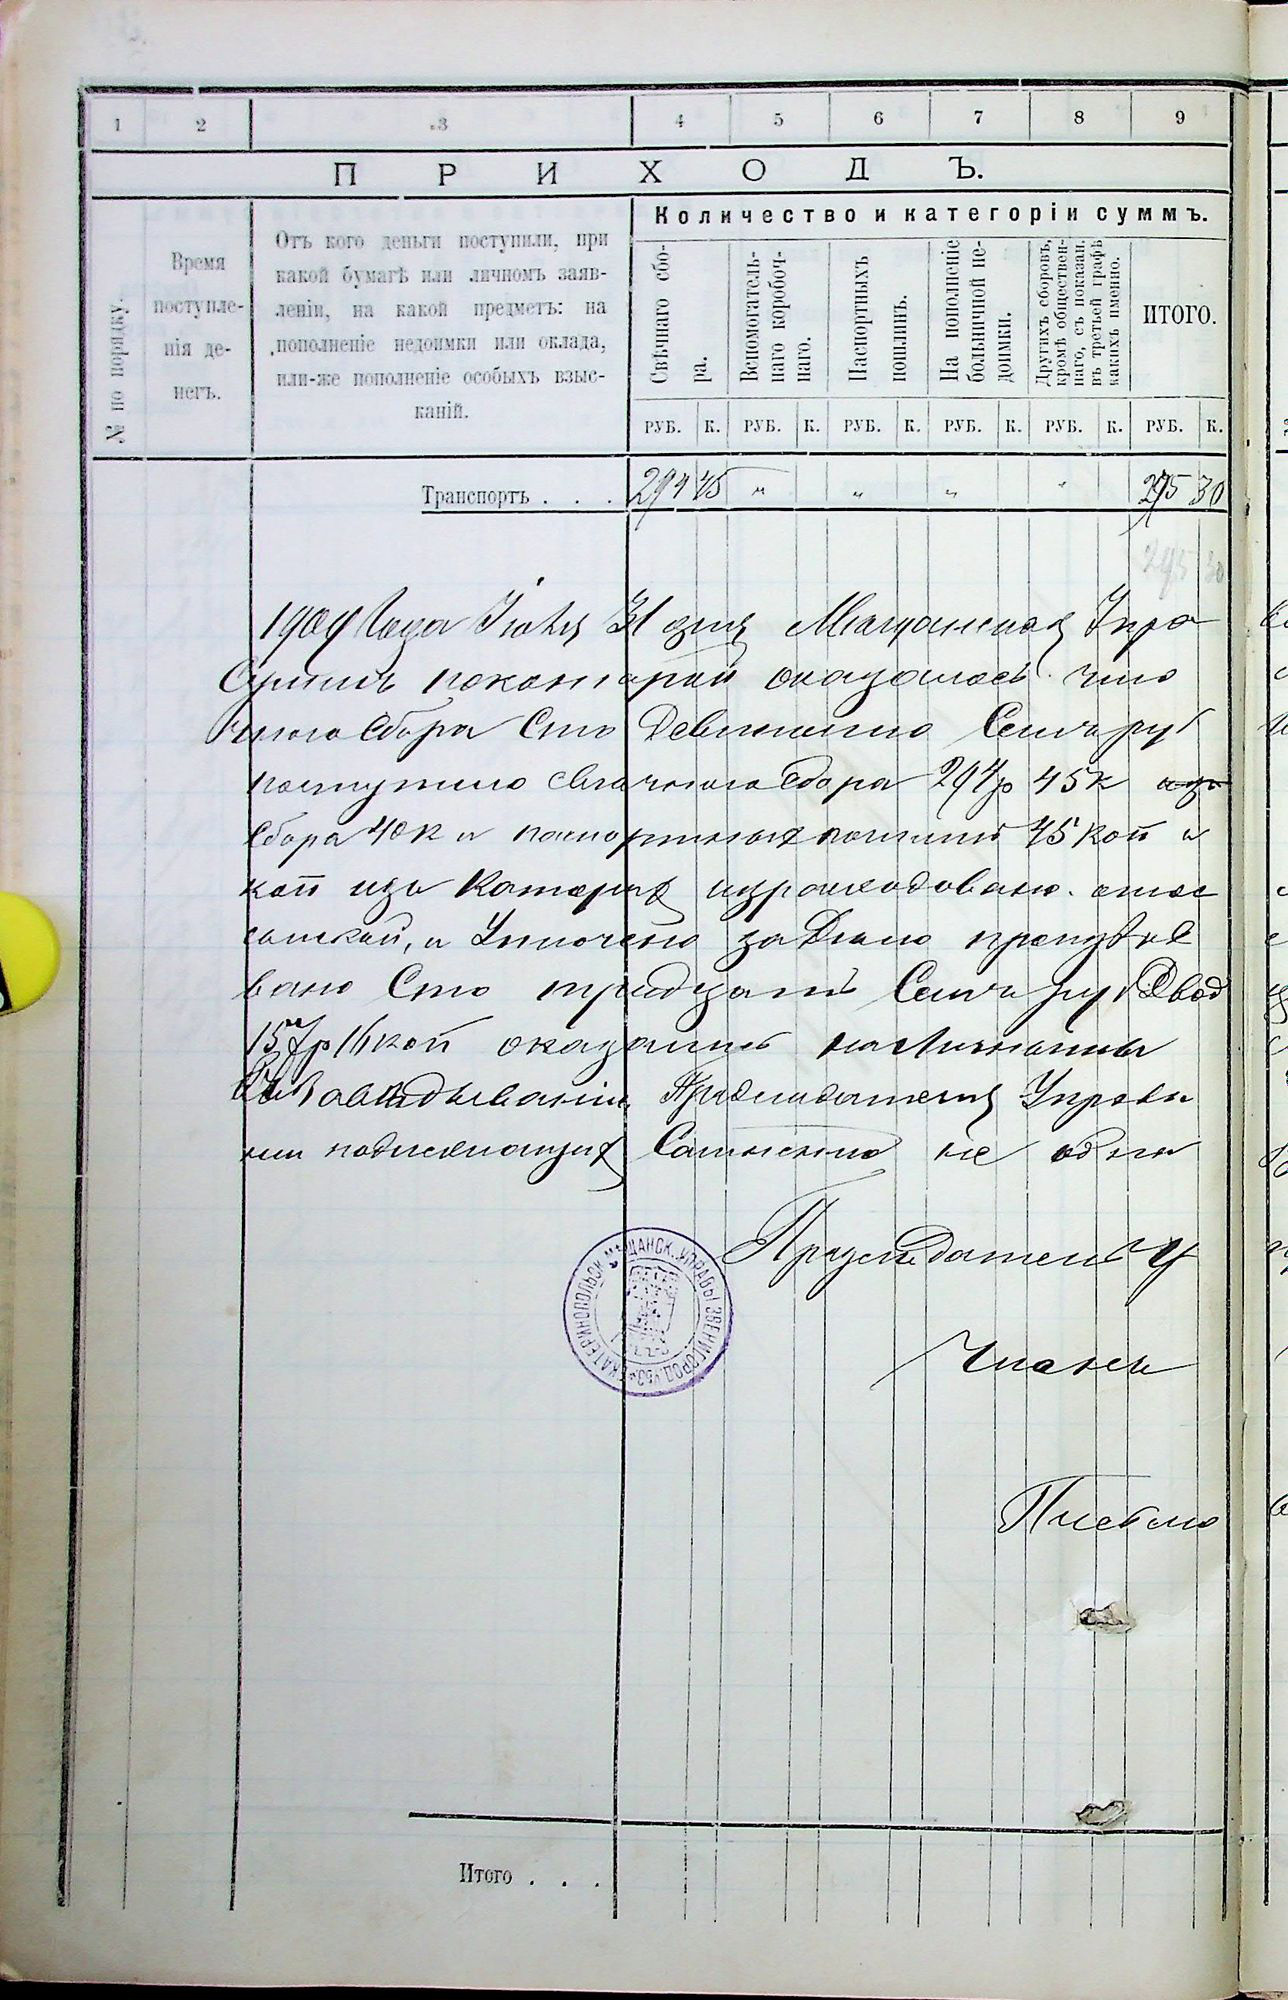 1 2 3 4 5 6 7 8 9
ПРИХОДЪ.
№ по порядку.
Время поступле-
нія де-
негъ.
Отъ кого деньги поступили, при
какой бумагѣ или личномъ заяв-
леніи, на какой предметъ: на
пополненіе недоимки или оклада,
или-же пополненіе особыхъ взыс-
каній.
Количество и категоріи суммъ.
Свѣчнаго сбо-
ра.
Вспомогатель-
наго коробоч-
наго.
Паспортныхъ
пошлинъ.
На пополненіе
больничной не-
доимки.
Другихъ сборовъ,
кромѣ обществен-
наго, съ показан.
въ третьей графѣ
какихъ именно.
ИТОГО.
РУБ. К. РУБ. К. РУБ. К. РУБ. К. РУБ. К. РУБ. К.
Транспортъ . . . 294 45 " " " " 295 30
295 30
1909 Года Іюля 31 дня Мѣщанская Упра
Суммъ оказалось что
чного Сбора Сто Девяносто Семь руб
поступило свѣчного сбора 297р 45к
Сбора 40к и пошлинъ 45 коп и
коп изъ Которыхъ израсходовано
и Уплочено за
вано Сто тридцать Семь руб Двад
157р 16коп оказались наличными
Завѣдываніи Предсѣдателя Управы
ни подлежащихъ Сомненію не
Предсѣдатель У
Члены
Письмо
ЕКАТЕРИНОПОЛЬСК. МѢЩАНСК. УПРАВЫ ЗВЕНИГОРОД. УѢЗ.
Итого . . .